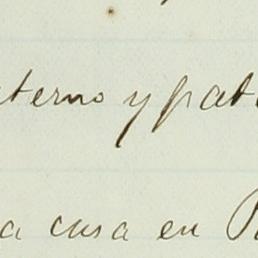 terno y pat
a casa en P